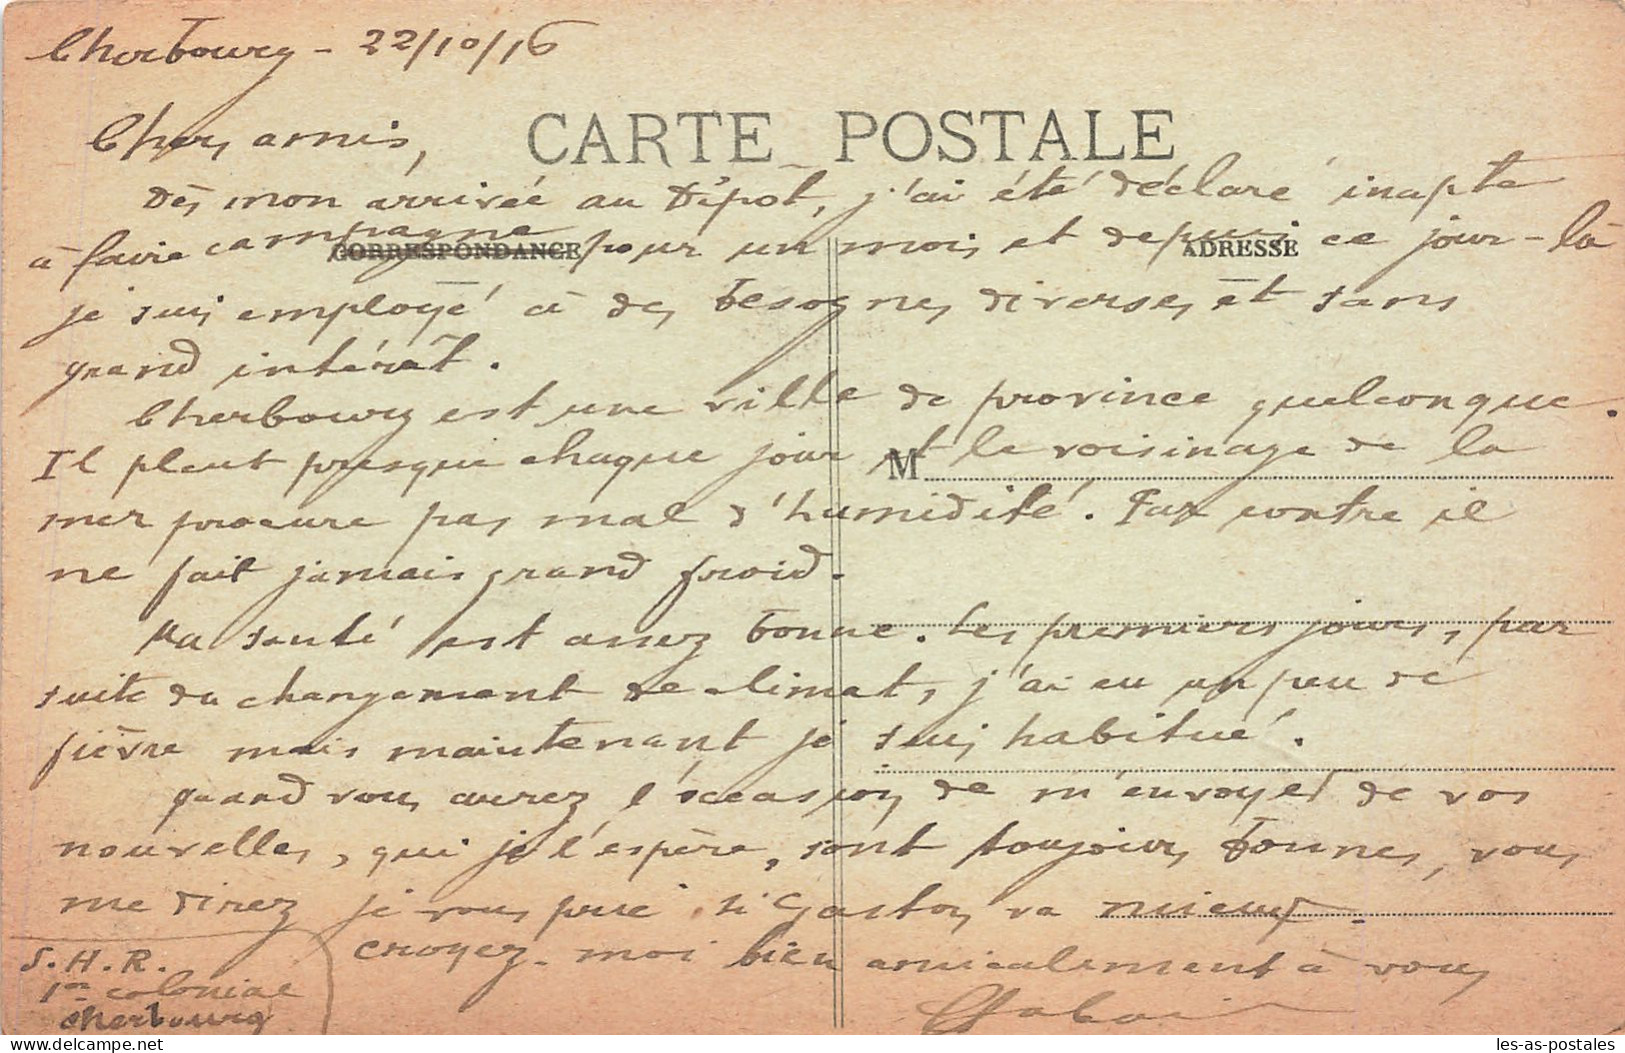 Cherbourg - 22/10/16
CARTE POSTALE
Chers amis,
Dès mon arrivée au Dépôt, j'ai été déclaré inapte
à faire campagne pour un mois et depuis ce jour-là
CORRESPONDANCE
ADRESSE
je suis employé à des besognes diverses et sans
grand intérêt.
Cherbourg est une ville de province quelconque.
Il pleut presque chaque jour et le voisinage de la
M
mer procure pas mal d'humidité. Par contre il
ne fait jamais grand froid.
Ma santé est assez bonne. Les premiers jours, par
suite du changement de climat, j'ai eu un peu de
fièvre mais maintenant je suis habitué.
Quand vous aurez l'occasion de m'envoyer de vos
nouvelles, qui je l'espère, sont toujours bonnes, vous
me direz je vous prie si Gaston va mieux.
Croyez-moi bien amicalement à vous
S.H.R.
1er colonial
Cherbourg
les-as-postales
© delcampe.net